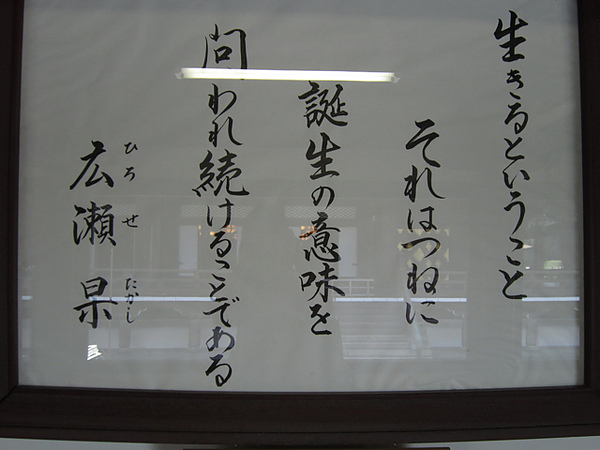 生きるということ
それはつねに
誕生の意味を
問われ続けることである
広瀬 杲
ひろ せ たかし